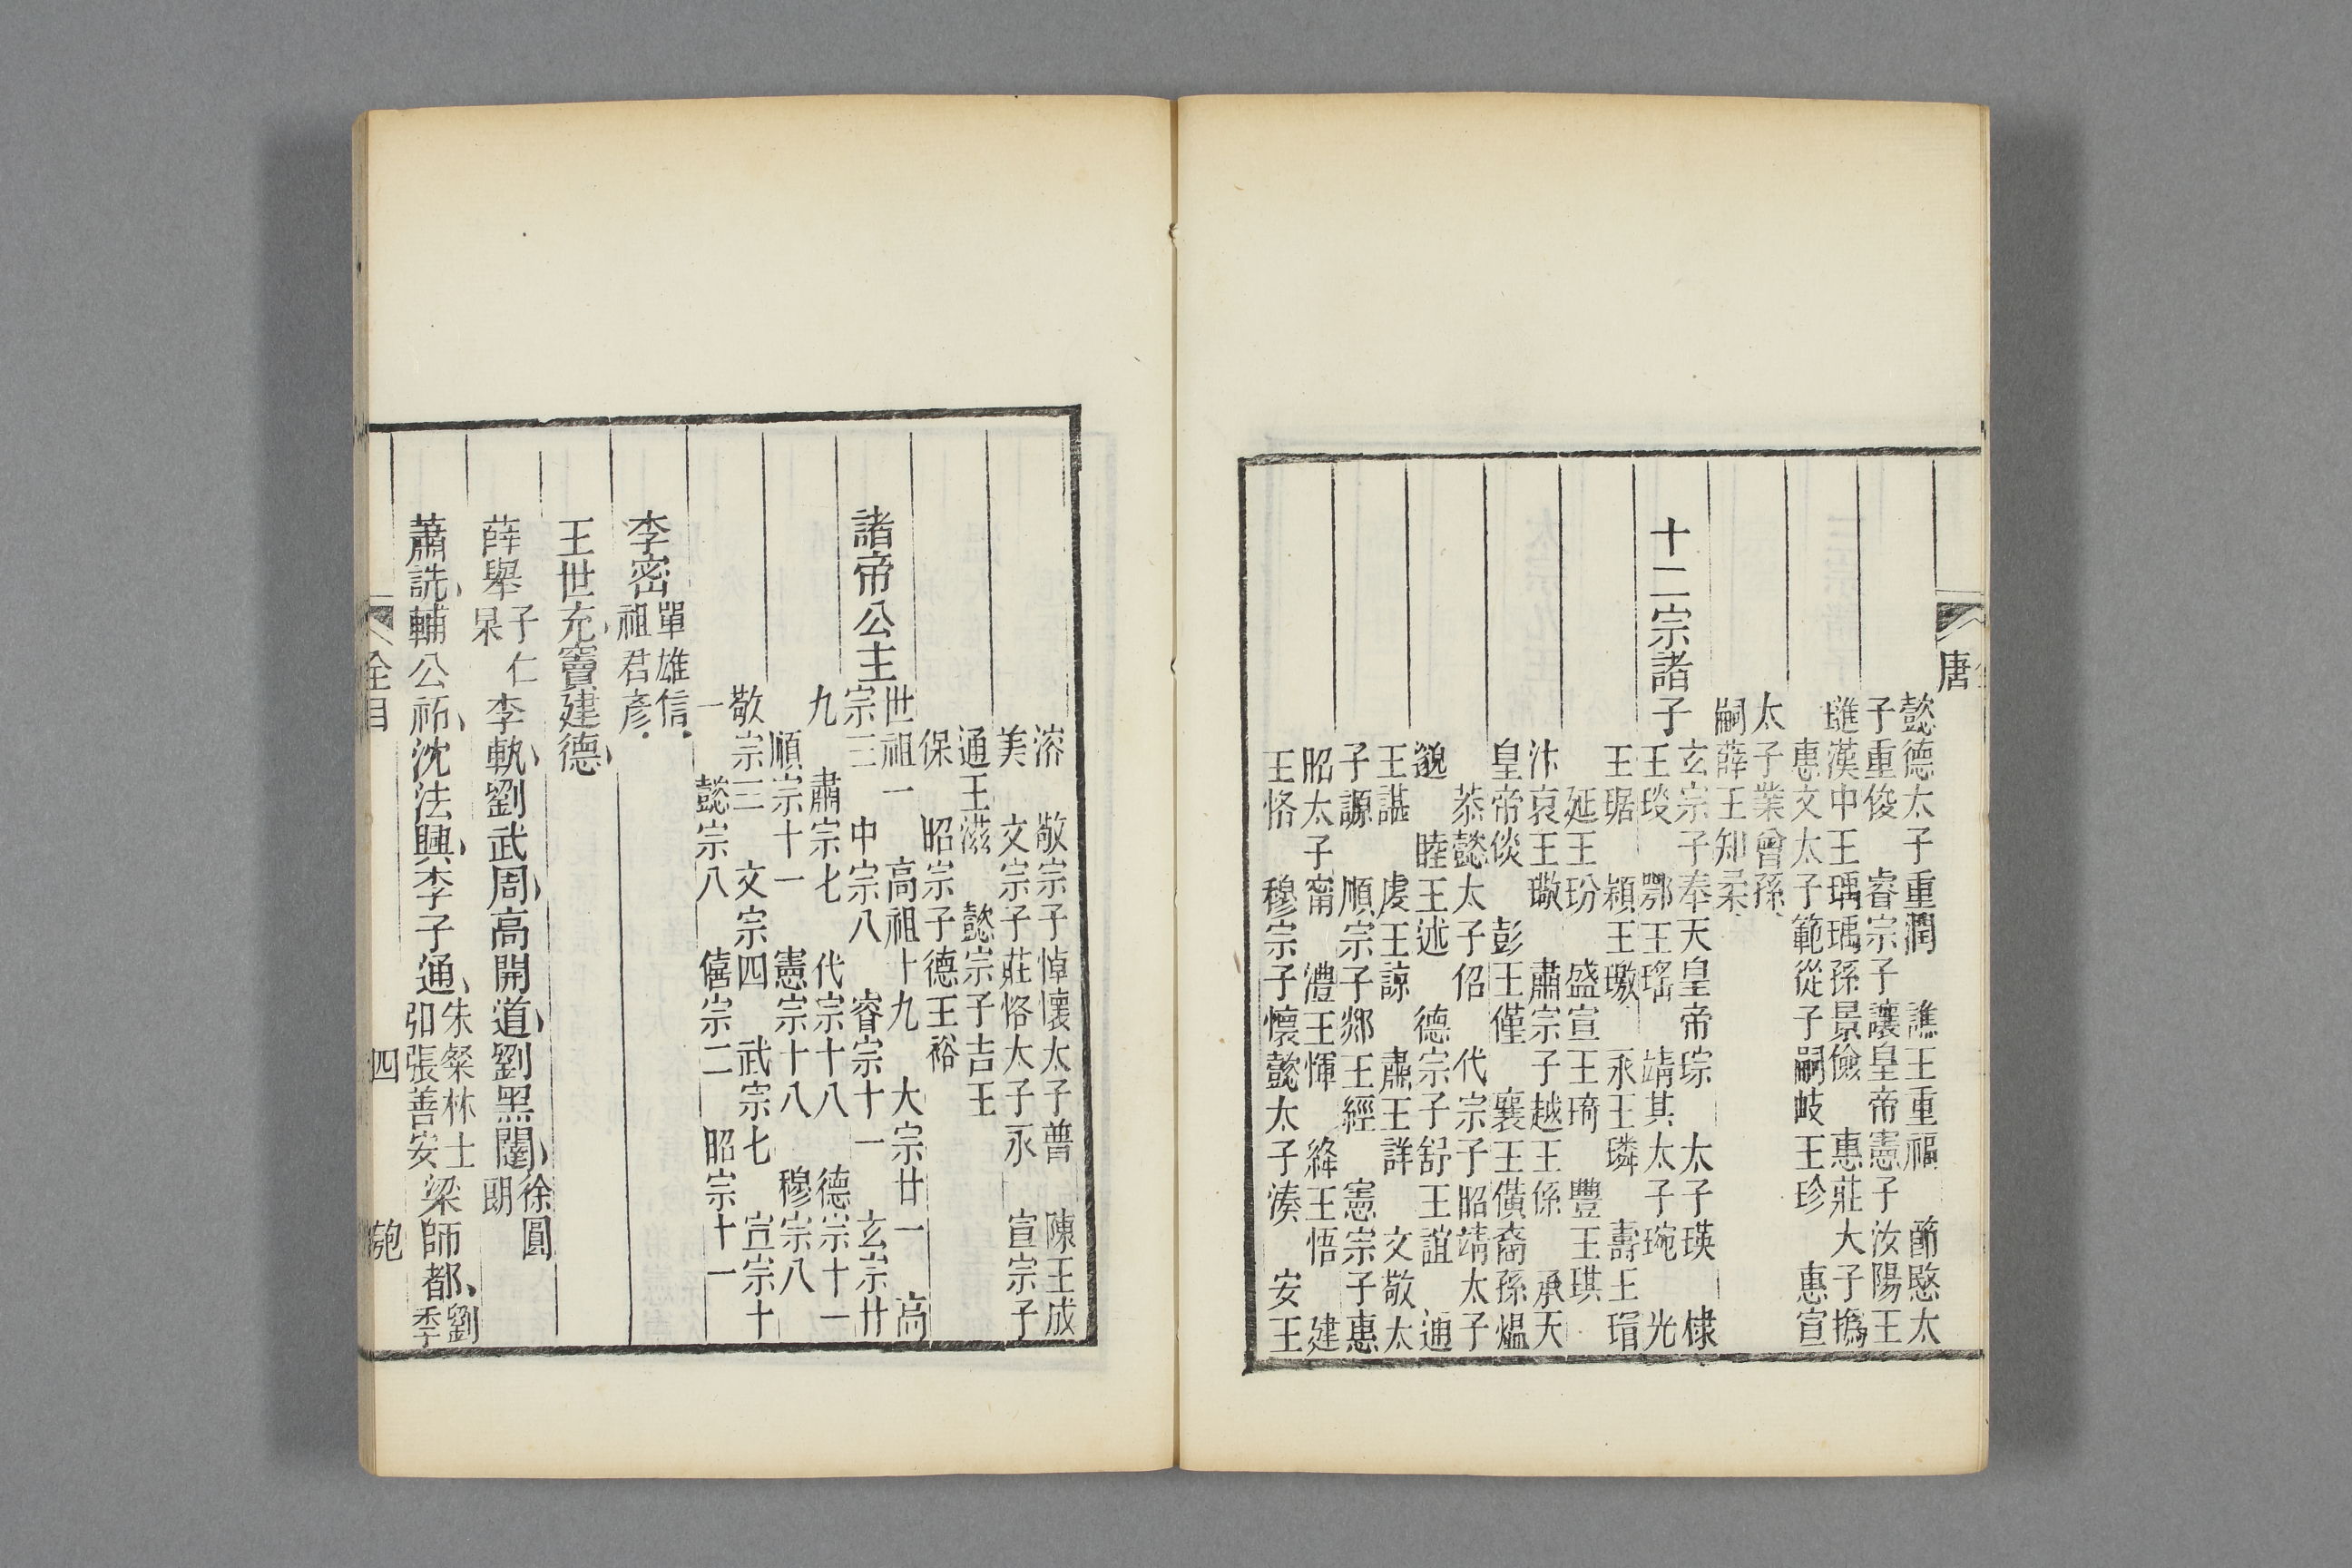 唐
懿德太子重潤 譙王重福 節愍太
子重俊 睿宗子讓皇帝憲子汝陽王
璡漢中王瑀瑀孫景儉 惠莊大子撝
惠文太子範從子嗣岐王珍 惠宣
太子業曾孫
嗣薛王知柔
十二宗諸子
玄宗子奉天皇帝琮 太子瑛 棣
王琰 鄂王瑤 靖其太子琬 光
王琚 潁王璬 永王璘 壽王瑁
延王玢 盛宣王琦 豐王琪
汴哀王璥 肅宗子越王係 承天
皇帝倓 彭王僅 襄王僙裔孫熅
恭懿太子佋 代宗子昭靖太子
邈 睦王述 德宗子舒王誼 通
王諶 虔王諒 肅王詳 文敬太
子謜 順宗子郯王經 憲宗子惠
昭太子甯 澧王惲 絳王悟 建
王恪 穆宗子懷懿太子湊 安王
溶 敬宗子悼懷太子普 陳王成
美 文宗子莊恪太子永 宣宗子
通王滋 懿宗子吉王
保 昭宗子德王裕
諸帝公主
世祖一 高祖十九 大宗廿一 高
宗三 中宗八 睿宗十一 玄宗廿
九 肅宗七 代宗十八 德宗十一
順宗十一 憲宗十八 穆宗八
敬宗三 文宗四 武宗七 宣宗十
一 懿宗八 僖宗二 昭宗十一
李密單雄信祖君彥
王世充竇建德
薛舉子仁杲李軌劉武周高開道劉黑闥徐圓朗
蕭詵輔公祏沈法興李子通朱粲林士弘張善安梁師都劉季
全目 四